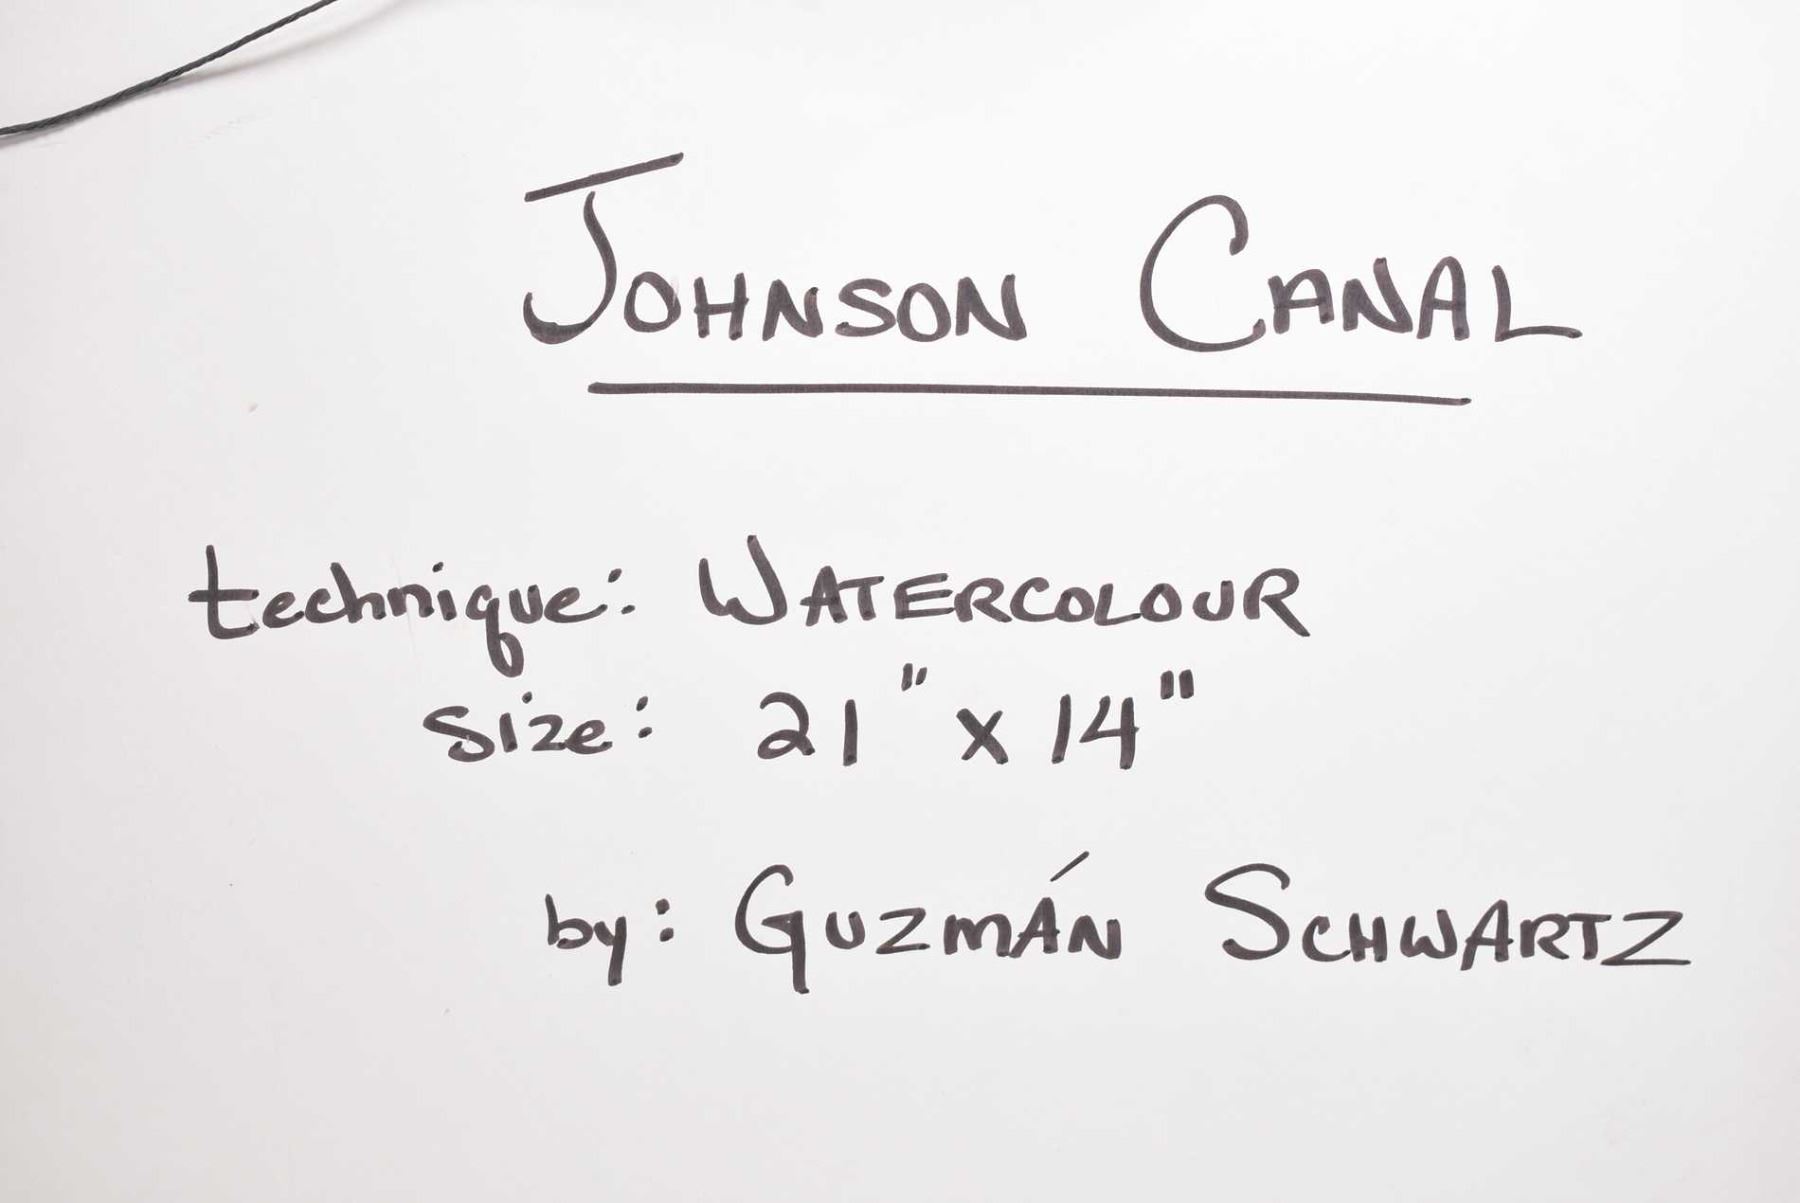 JOHNSON CANAL
technique: WATERCOLOUR
size: 21" x 14"
by: GUZMÁN SCHWARTZ